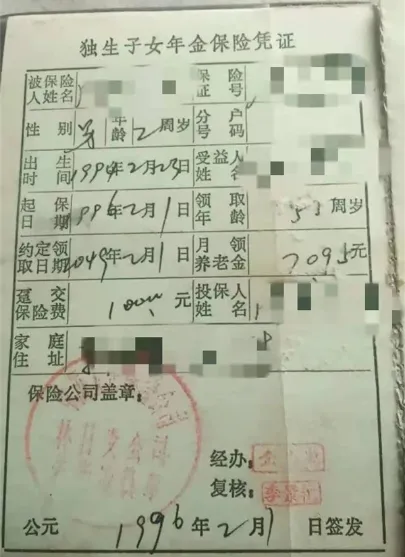 独生子女年金保险凭证
被保险人姓名 保证 险号
性别 男 年龄 2周岁 分号 户码
出生时间 1994年2月23日 受益人姓名
起保日期 1996年2月1日 领取年龄 55周岁
约定领取日期 2049年2月1日 月领养老金 2095元
趸交保险费 1000元 投保人姓名
家庭住址
保险公司盖章:
经办:
复核:
公元 1996年2月1日签发